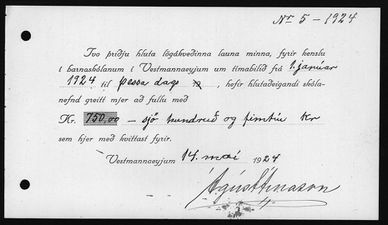 No 5 - 1924
Tvo þriðju hluta lögákveðinna launa minna, fyrir kenslu
í barnaskólanum í Vestmannaeyjum um tímabilið frá 1. janúar
1924 til þessa dags 19 , hefir hlutaðeigandi skóla-
nefnd greitt mjer að fullu með
Kr. 750,00 — sjö hundruð og fimtíu kr
sem hjer með kvittast fyrir.
Vestmannaeyjum 14. maí 1924
Ágúst Árnason